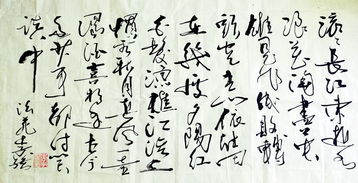 滚〻长江东逝水
浪花淘尽英
雄是非成败转
头空青山依旧
在几度夕阳红
白发渔樵江渚上
惯看秋月春风一壶
浊酒喜相逢古今
多少事都付笑
谈中